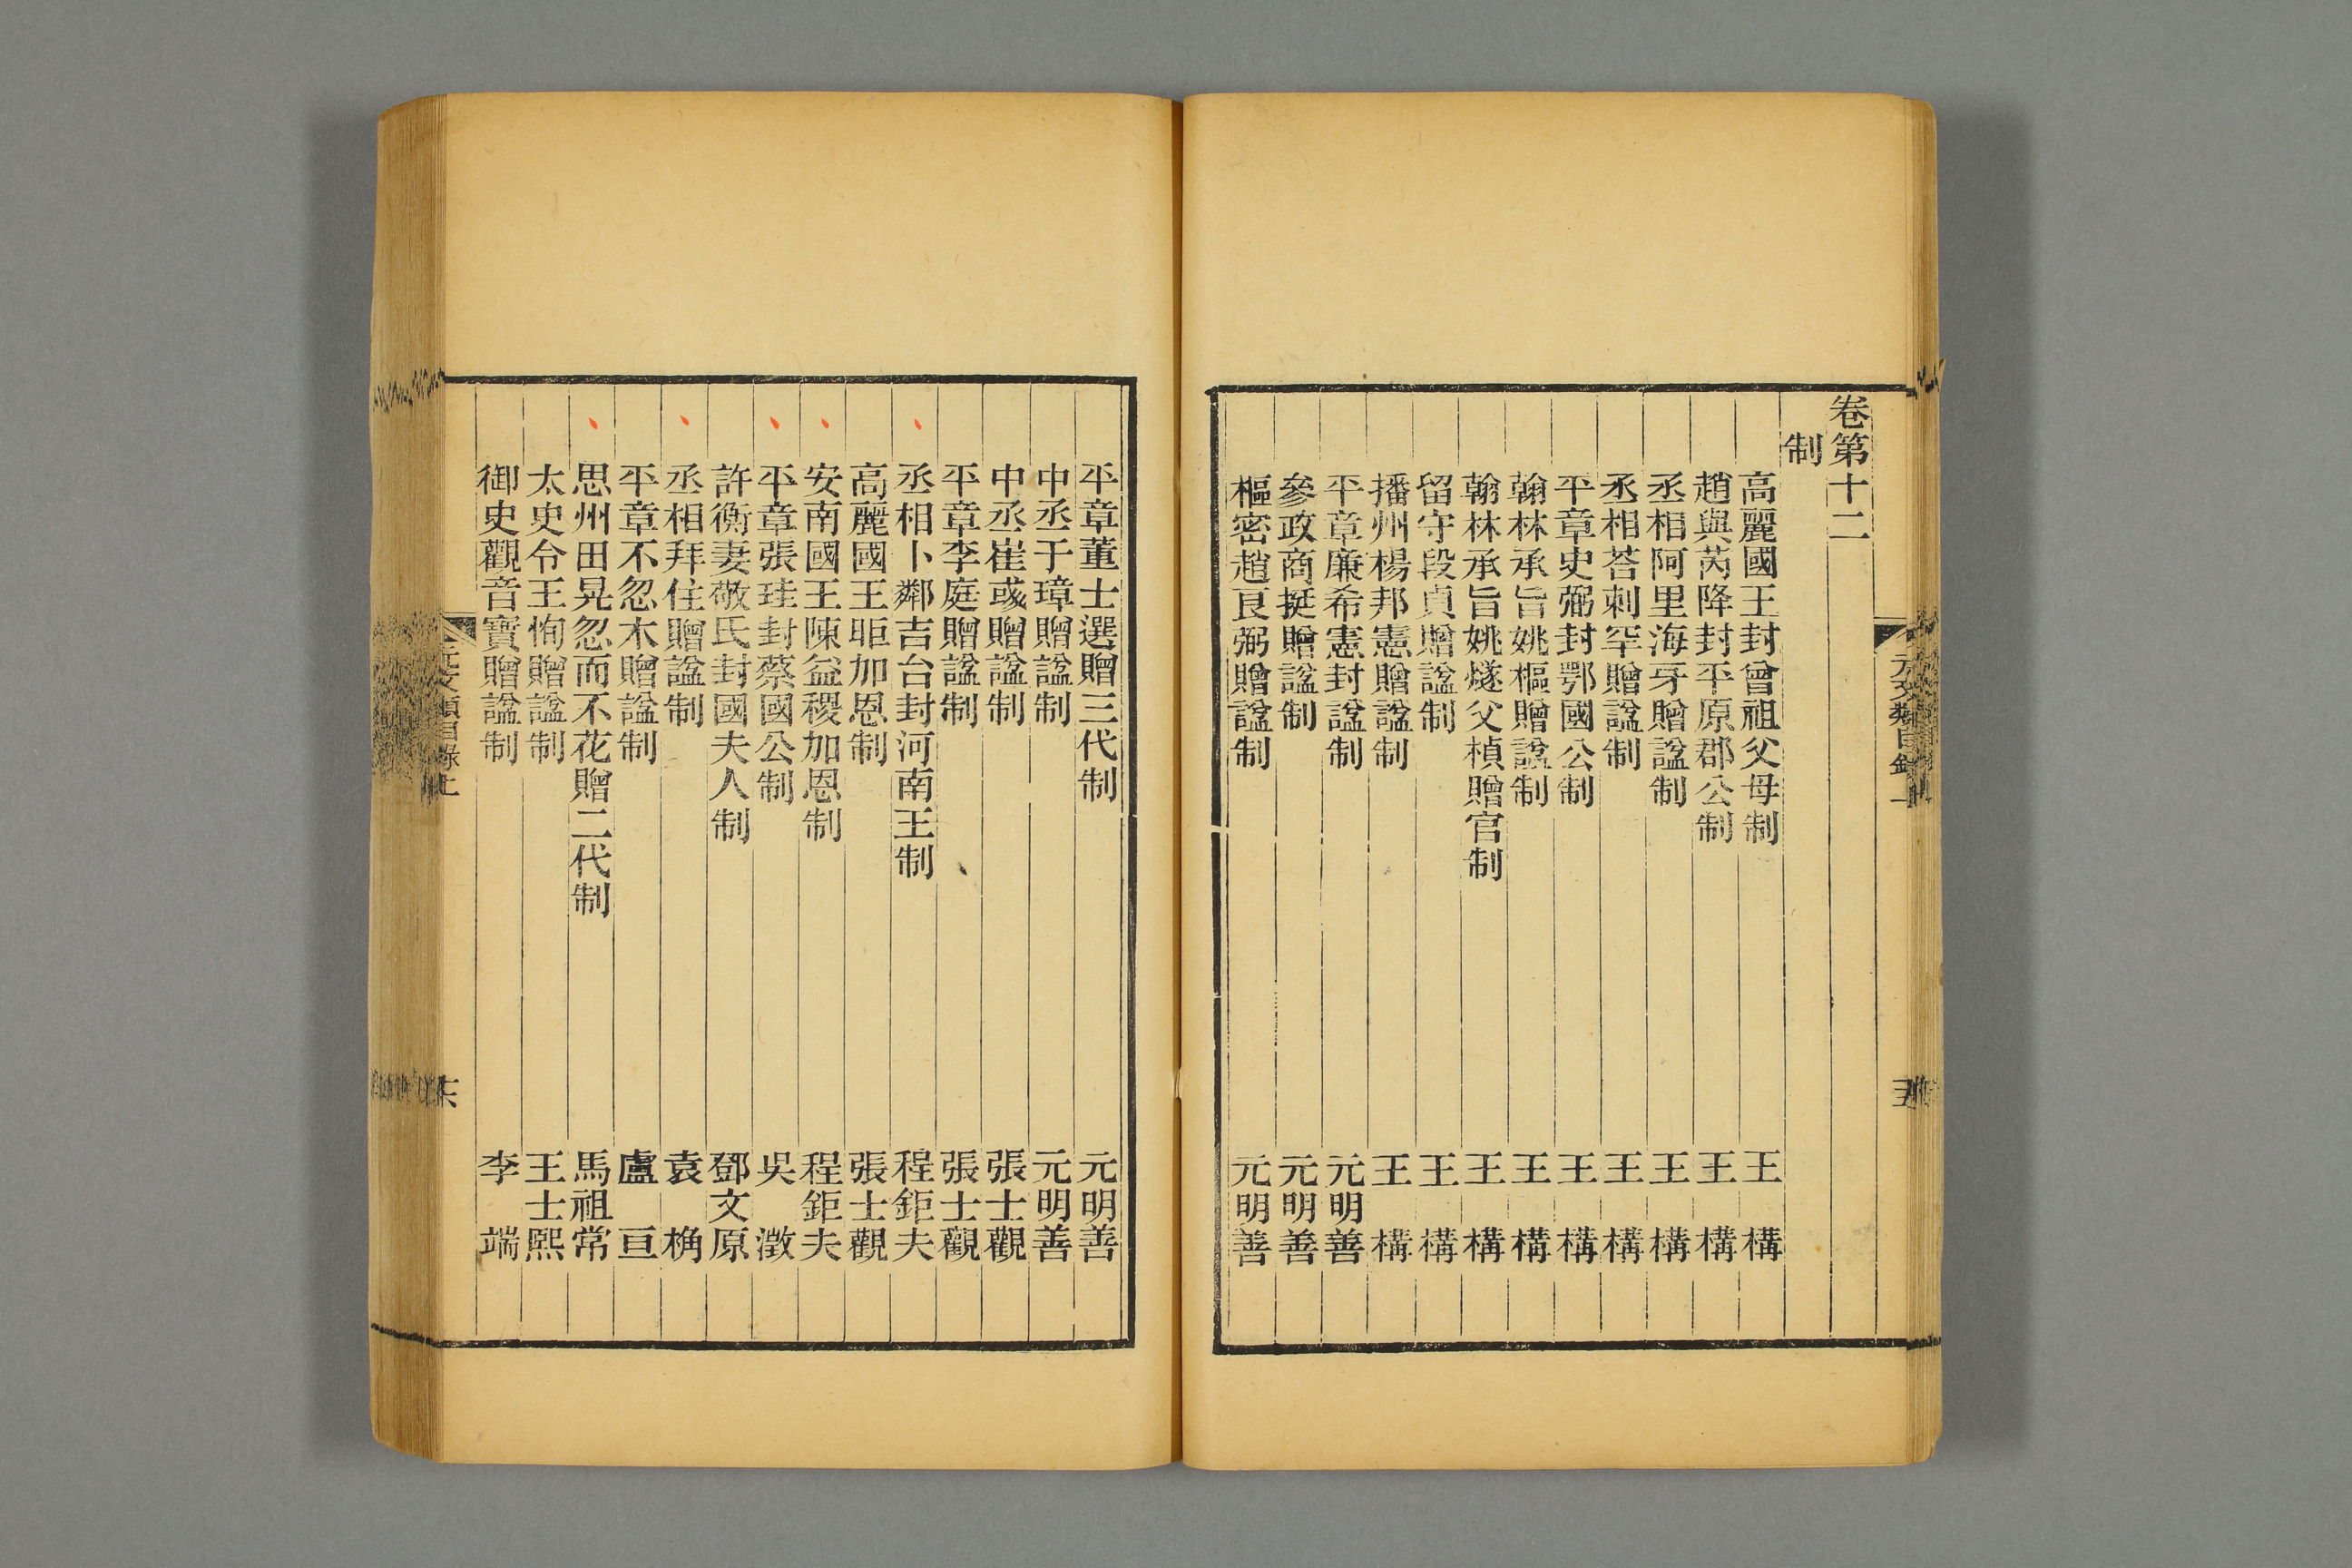 卷第十二
制
高麗國王封曾祖父母制 王構
趙與芮降封平原郡公制 王構
丞相阿里海牙贈諡制 王構
丞相荅剌罕贈諡制 王構
平章史弼封鄂國公制 王構
翰林承旨姚樞贈諡制 王構
翰林承旨姚燧父楨贈官制 王構
留守段貞贈諡制 王構
播州楊邦憲贈諡制 王構
平章廉希憲封諡制 元明善
參政商挺贈諡制 元明善
樞密趙良弼贈諡制 元明善
平章董士選贈三代制 元明善
中丞于璋贈諡制 元明善
中丞崔彧贈諡制 張士觀
平章李庭贈諡制 張士觀
丞相卜鄰吉台封河南王制 程鉅夫
高麗國王昛加恩制 張士觀
安南國王陳益稷加恩制 程鉅夫
平章張珪封蔡國公制 吳澂
許衡妻敬氏封國夫人制 鄧文原
丞相拜住贈諡制 袁桷
平章不忽木贈諡制 盧亘
思州田晃忽而不花贈二代制 馬祖常
太史令王恂贈諡制 王士熙
御史觀音寶贈諡制 李端